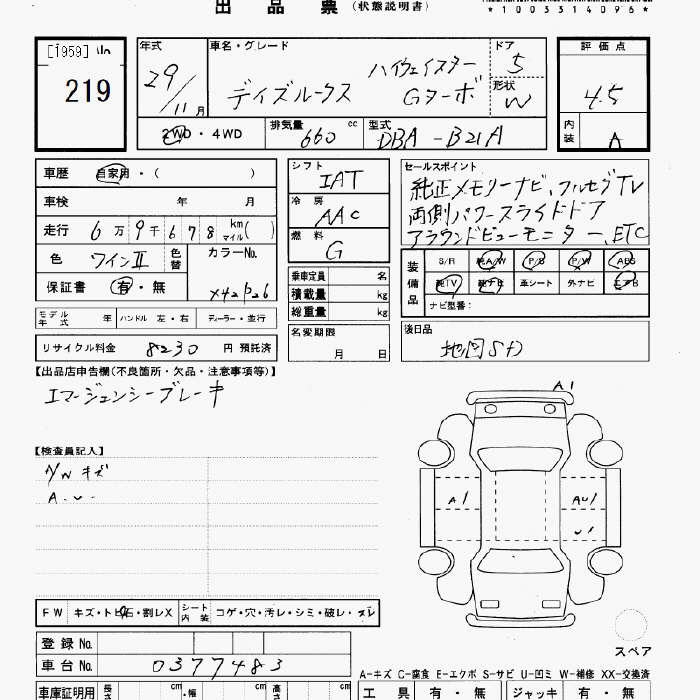 出 品 票 (状態説明書)
*1003314096*
[1959] 219
年式 29/11 月
車名・グレード デイズルークス ハイウェイスター Gターボ
ドア 5
形状 W
評価点 4.5
内装 A
2WD・4WD
排気量 660 cc
型式 DBA-B21A
車歴 自家用・( )
車検 年 月
走行 6万9千678 km マイル( )
色 ワインII 色替 カラーNo.
保証書 有・無
シフト IAT
冷房 AAC
燃料 G
乗車定員 名
積載量 kg
総重量 kg
セールスポイント
純正メモリーナビ、フルセグTV
両側パワースライドドア
アラウンドビューモニター、ETC
装備品 S/R 純A/W P/S P/W ABS
純TV 純ナビ 革シート 外ナビ エアB
ナビ型番:
モデル年式 年 ハンドル 左・右 ディーラー・並行
名変期限 月 日
後日品 地図SD
リサイクル料金 8230 円 預託済
【出品店申告欄(不良箇所・欠品・注意事項等)】
エマージェンシーブレーキ
【検査員記入】
A/W キズ
A.U.
A1
A1 AU1
U1
FW キズ・トビ石・割レX シート内装 コゲ・穴・汚レ・シミ・破レ・スレ
スペア
登録 No.
車台 No. 0377483
A-キズ C-腐食 E-エクボ S-サビ U-凹ミ W-補修 XX-交換済
車庫証明用 長さ cm ・幅 cm 高さ cm
工具 有・無 ジャッキ 有・無